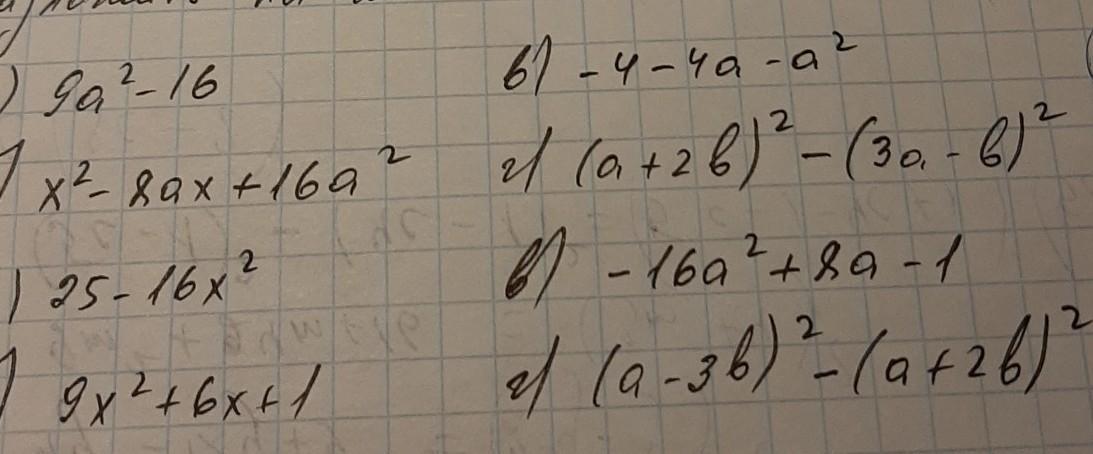 ) 9a² - 16 в) - 4 - 4a - a²
) x² - 8ax + 16a² г) (a + 2b)² - (3a - b)²
) 25 - 16x² в) - 16a² + 8a - 1
) 9x² + 6x + 1 г) (a - 3b)² - (a + 2b)²